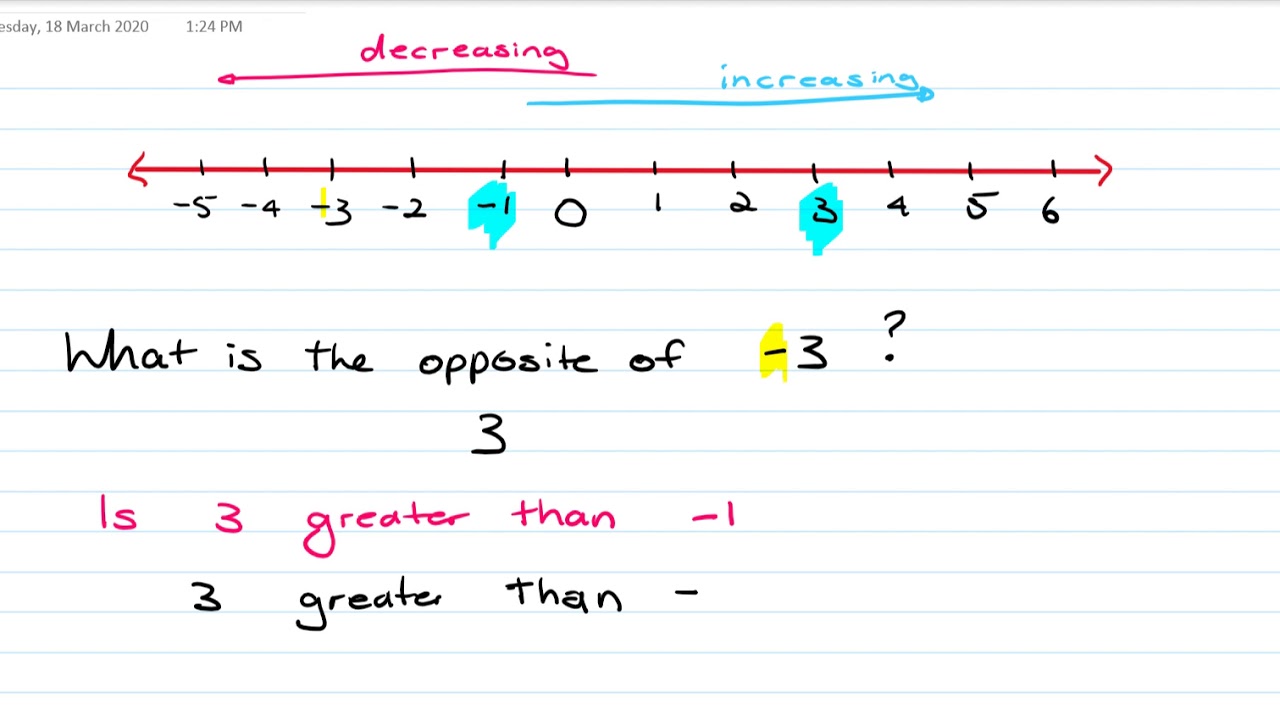 esday, 18 March 2020 1:24 PM
decreasing
increasing
-5 -4 -3 -2 -1 0 1 2 3 4 5 6
What is the opposite of -3 ?
3
Is 3 greater than -1
3 greater than -